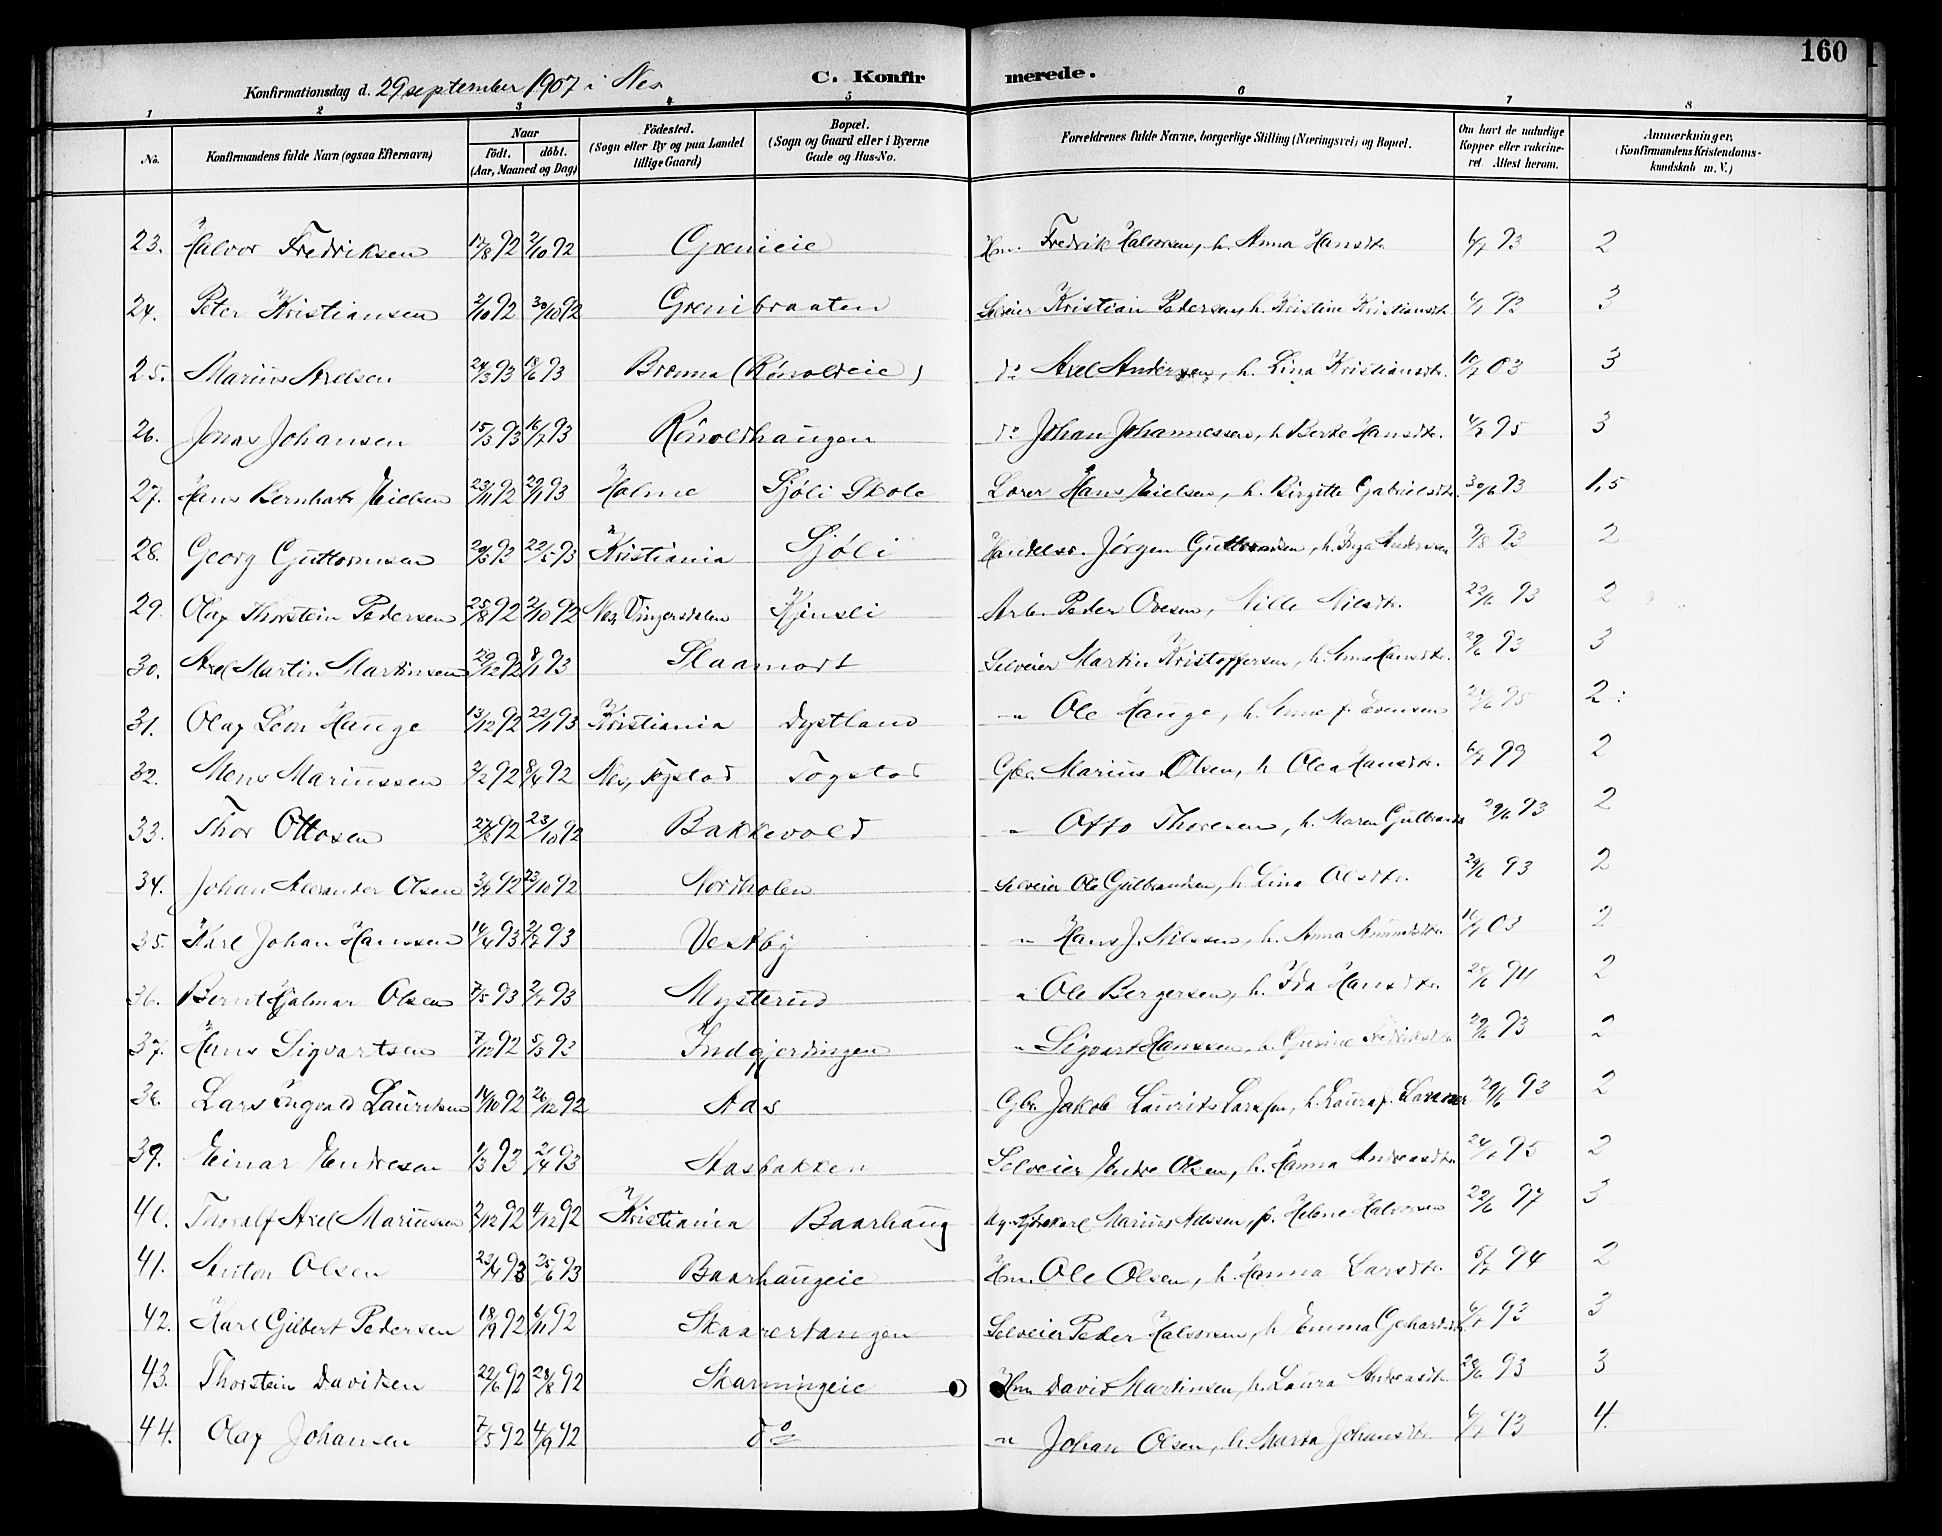 160
Konfirmationsdag d. 29 september 1907 i Nes
C. Konfirmerede.
1 2 3 4 5 6 7 8
No. Konfirmandens fulde Navn (ogsaa Efternavn) Naar født. døbt. (Aar, Maaned og Dag) Fødested. (Sogn eller By og paa Landet tillige Gaard) Bopæl. (Sogn og Gaard eller i Byerne Gade og Hus-No. Forældrenes fulde Navne, borgerlige Stilling (Næringsvei) og Bopæl. Om havt de naturlige Kopper eller vakcineret. Attest herom. Anmærkninger. (Konfirmandens Kristendomskundskab m. V.)
23. Halvor Fredriksen 17/8 92 2/10 92 Grenieie Hm. Fredrik Halvorsen, h. Anna Hansdtr. 6/7 93 2
24. Peter Kristiansen 2/10 92 30/10 92 Grenibraaten Selveier Kristian Pedersen, h. Kristine Kristiansdtr. 6/7 93 3
25. Marius Axelsen 24/3 93 18/6 93 Brænna (Rönoldeie) do Axel Andersen, h. Lina Kristiansdtr. 10/7 03 3
26. Jonas Johansen 15/3 93 16/7 93 Rönoldhaugen do Johan Johannessen, h. Berte Hansdtr. 4/7 95 3
27. Hans Bernhard Eielsen 23/11 92 29/1 93 Holme Sjøli Skole Lærer Hans Eielsen, h. Birgitte Gabrielsdtr. 30/6 93 1,5
28. Georg Guttormsen 20/3 93 22/5 93 Kristiania Sjøli Handelsr. Jørgen h. Inga Andersen 9/8 93 2
29. Olaf Thorstein Pedersen 25/8 92 2/10 92 Nes, Dingersdalen Hjensli Arb. Peder Ovesen, Nille Nilsdtr. 22/6 93 2
30. Axel Martin Martinsen 29/12 92 8/1 93 Slaamodt Selveier Martin Kristoffersen, h. Anne Hansdtr. 29/6 93 3
31. Olaf Leon Hauge 13/12 92 22/1 93 Kristiania Dystland " Ole Hauge, h. Anne f. Evensen 21/6 95 2
32. Mens Mariussen 3/2 92 8/4 92 Nes, Togstad Togstad Gbr. Marius Olsen, h. Olea Hansdtr. 6/7 99 2
33. Thor Ottosen 27/8 92 23/10 92 Bakkevold " Otto Thoresen, h. Maren Gulbrands 29/6 93 2
34. Johan Alexander Olsen 3/9 92 23/10 92 Nordholen Selveier Ole Gulbrandsen, h. Lina Olsdtr. 29/6 93 2
35. Karl Johan Hanssen 14/4 93 2/7 93 Vestby " Hans J. Nilssen, h. Anna Amundsdtr. 10/7 03 2
36. Bernt Hjalmar Olsen 7/5 93 2/7 93 Mysterud " Ole Bergersen, h. Ida Hansdtr. 28/6 94 2
37. Hans Sigvartsen 7/12 92 5/3 93 Indgjerdingen " Sigvart Hanssen, h. Gusine Fredriksdtr. 29/6 93 2
38. Lars Ingvald Lauritsen 14/10 92 26/12 92 Aas Gbr. Jakob Laurits Larsen, h. Laura f. Larsen 29/6 93 2
39. Einar Endresen 1/3 93 2/4 93 Aasbakken Selveier Endre Olsen, h. Hanna Andreasdtr. 24/7 95 2
40. Thoralf Axel Mariussen 2/12 92 4/12 92 Kristiania Baarhaug Marius Nilssen, p. Helene Halvorsen 22/6 97 3
41. Anton Olsen 23/4 93 25/6 93 Baarhaugeie Hm. Ole Olsen, h. Hanna Larsdtr. 5/7 94 2
42. Karl Gilbert Pedersen 18/9 92 6/11 92 Skaarertangen Selveier Peder Halvorsen, h. Emma Gehardsdtr. 6/7 93 3
43. Thorstein Davidsen 22/6 92 28/8 92 Skarningeie Hm David Martinsen, h. Laura Andreasdtr. 28/6 93 3
44. Olaf Johansen 7/5 92 4/9 92 do " Johan Olsen, h. Marta Johansdtr. 6/7 93 4.